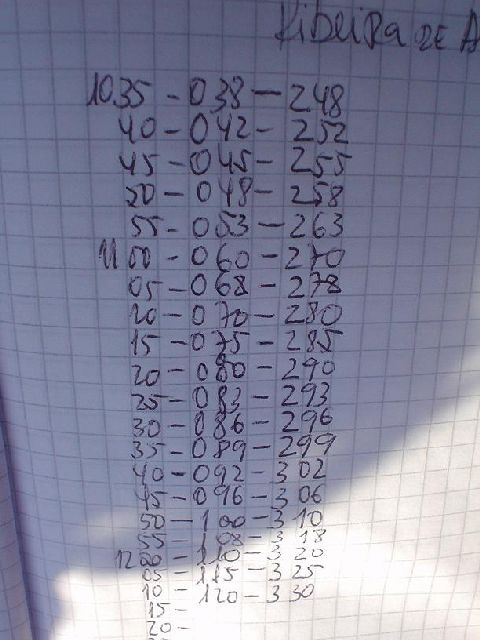 Ribeira DE A
1035 - 038 - 248
40 - 042 - 252
45 - 045 - 255
50 - 048 - 258
55 - 053 - 263
1100 - 060 - 270
05 - 068 - 278
10 - 070 - 280
15 - 075 - 285
20 - 080 - 290
25 - 083 - 293
30 - 086 - 296
35 - 089 - 299
40 - 092 - 302
45 - 096 - 306
50 - 100 - 310
55 - 108 - 318
1200 - 110 - 320
05 - 115 - 325
10 - 120 - 330
15 -
20 -